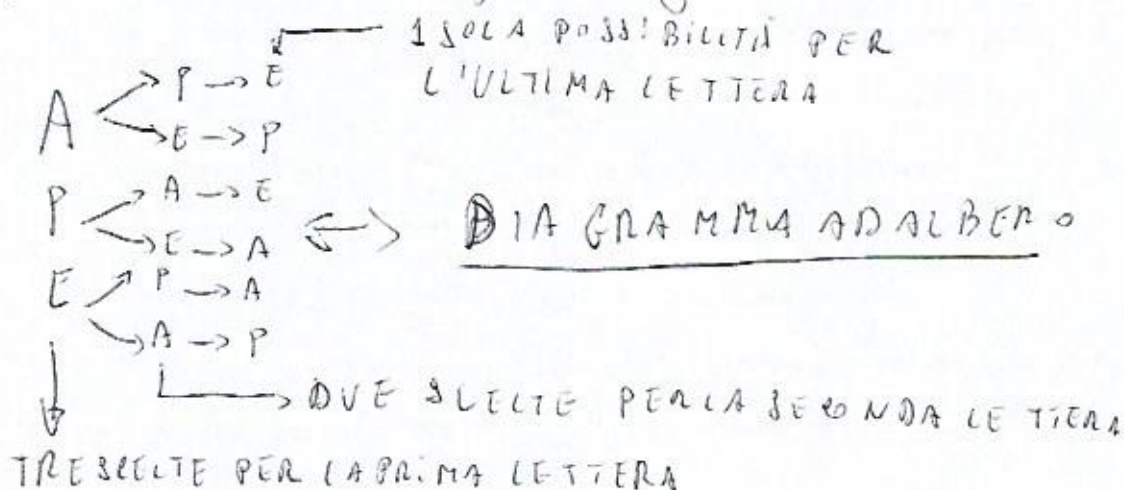 1 SOLA POSSIBILITÀ PER
L'ULTIMA LETTERA
A P → E
E → P
P A → E
E → A
E P → A
A → P
DIAGRAMMA AD ALBERO
DUE SCELTE PER LA SECONDA LETTERA
TRE SCELTE PER LA PRIMA LETTERA